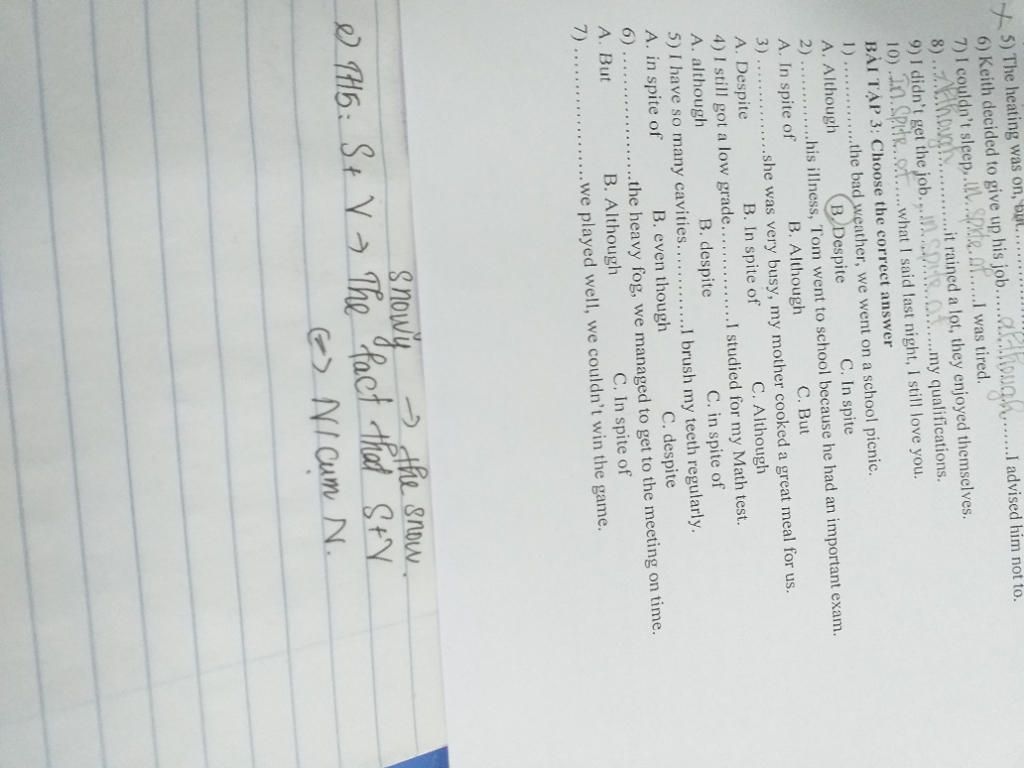 5) The heating was on, but
6) Keith decided to give up his job......although......I advised him not to.
7) I couldn't sleep, in spite of......I was tired.
8) ...Although...............it rained a lot, they enjoyed themselves.
9) I didn't get the job,...in spite of.........my qualifications.
10) .In spite of.......what I said last night, I still love you.
BÀI TẬP 3: Choose the correct answer
1) ............the bad weather, we went on a school picnic.
A. Although B. Despite C. In spite
2) ............his illness, Tom went to school because he had an important exam.
A. In spite of B. Although C. But
3) ............she was very busy, my mother cooked a great meal for us.
A. Despite B. In spite of C. Although
4) I still got a low grade..............I studied for my Math test.
A. although B. despite C. in spite of
5) I have so many cavities............I brush my teeth regularly.
A. in spite of B. even though C. despite
6) ..................the heavy fog, we managed to get to the meeting on time.
A. But B. Although C. In spite of
7) ..................we played well, we couldn't win the game.
snowy → the snow.
e) TH5: S + V → The fact that S+V
<=> N / cụm N.